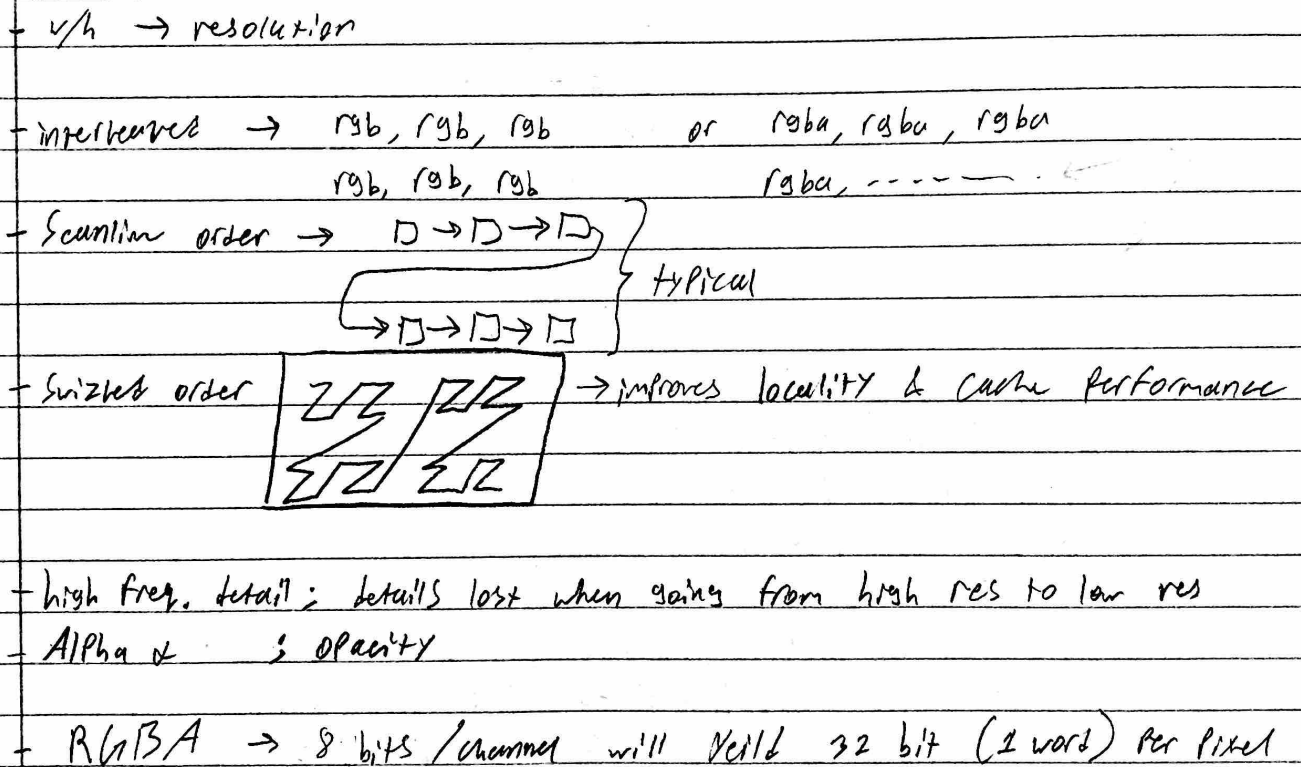 - v/h → resolution
- interleaved → rgb, rgb, rgb or rgba, rgba, rgba
rgb, rgb, rgb rgba, -----.
- Scanline order →
typical
- Swizled order → improves locality & cache performance
- high freq. detail ; details lost when going from high res to low res
- Alpha α ; opacity
- RGBA → 8 bits / channel will Yeild 32 bit (1 word) per pixel